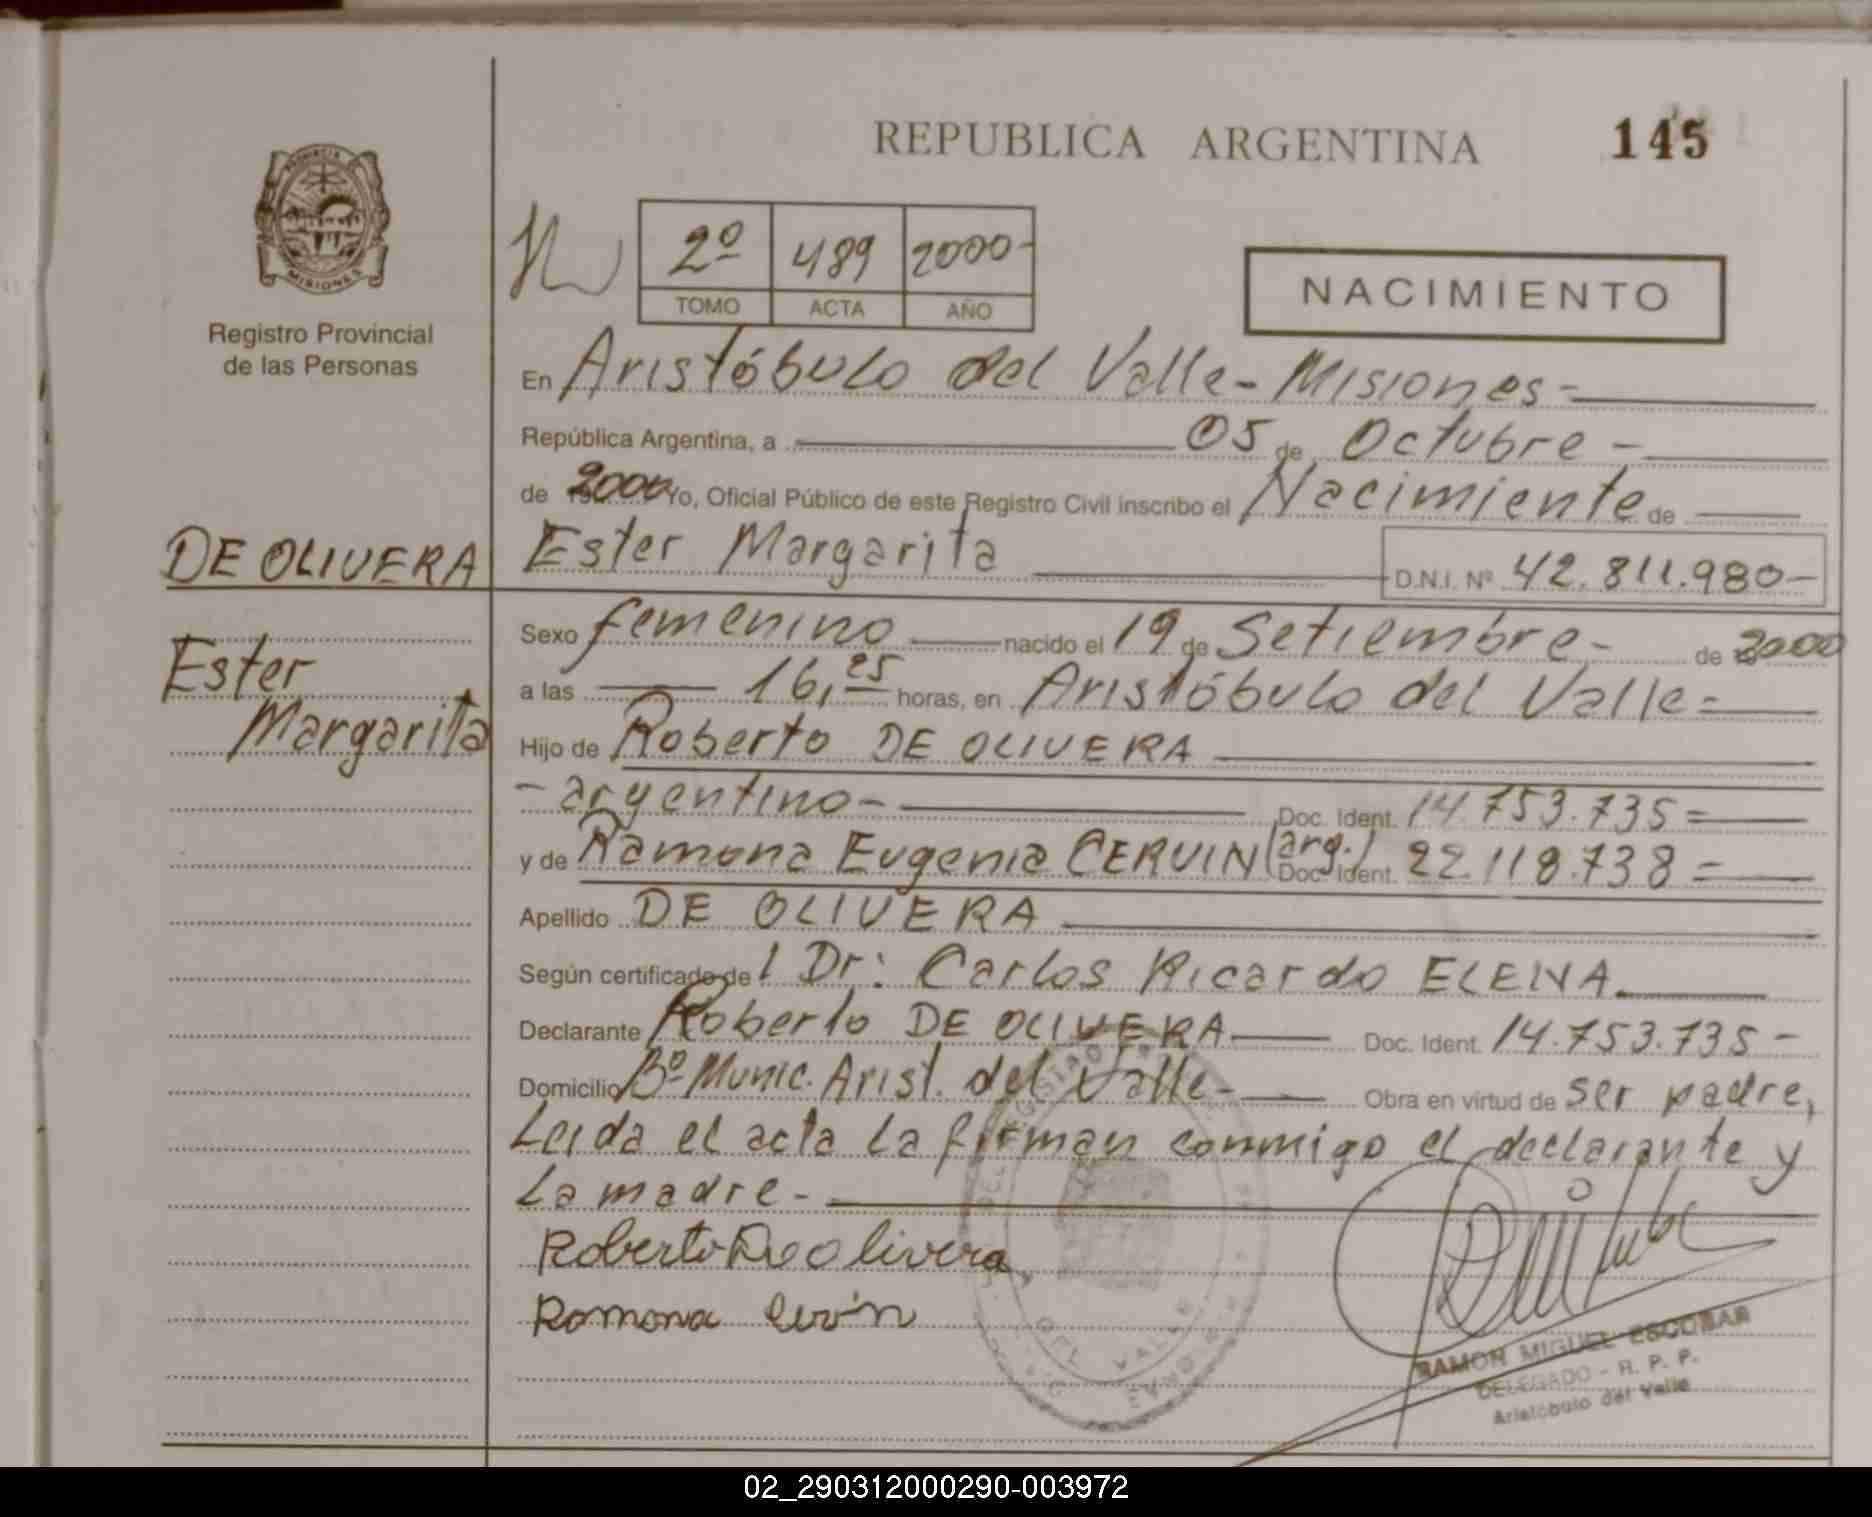 REPUBLICA ARGENTINA
145
PROVINCIA
MISIONES
Registro Provincial
de las Personas
2º 489 2000-
TOMO ACTA AÑO
NACIMIENTO
En Aristóbulo del Valle - Misiones -
República Argentina, a 05 de Octubre -
de 2000 Yo, Oficial Público de este Registro Civil inscribo el Nacimiento de
DE OLIVERA
Ester Margarita D.N.I. Nº 42.811.980-
Ester
Margarita
Sexo femenino nacido el 19 de Setiembre - de 2000
a las 16,25 horas, en Aristóbulo del Valle =
Hijo de Roberto DE OLIVERA
- argentino - Doc. Ident. 14.753.735 =
y de Ramona Eugenia CERVIN (arg.) Doc. Ident. 22.118.738 =
Apellido DE OLIVERA
Según certificado de l Dr: Carlos Ricardo ELENA.
Declarante Roberto DE OLIVERA Doc. Ident. 14.753.735 -
Domicilio Bº Munic. Arist. del Valle - Obra en virtud de ser padre,
Leida el acta la firman conmigo el declarante y
la madre -
Roberto De olivera
Ramona Cervín
DEL VALLE
RAMON MIGUEL ESCOBAR
DELEGADO - R. P. P.
Aristóbulo del Valle
02_290312000290-003972